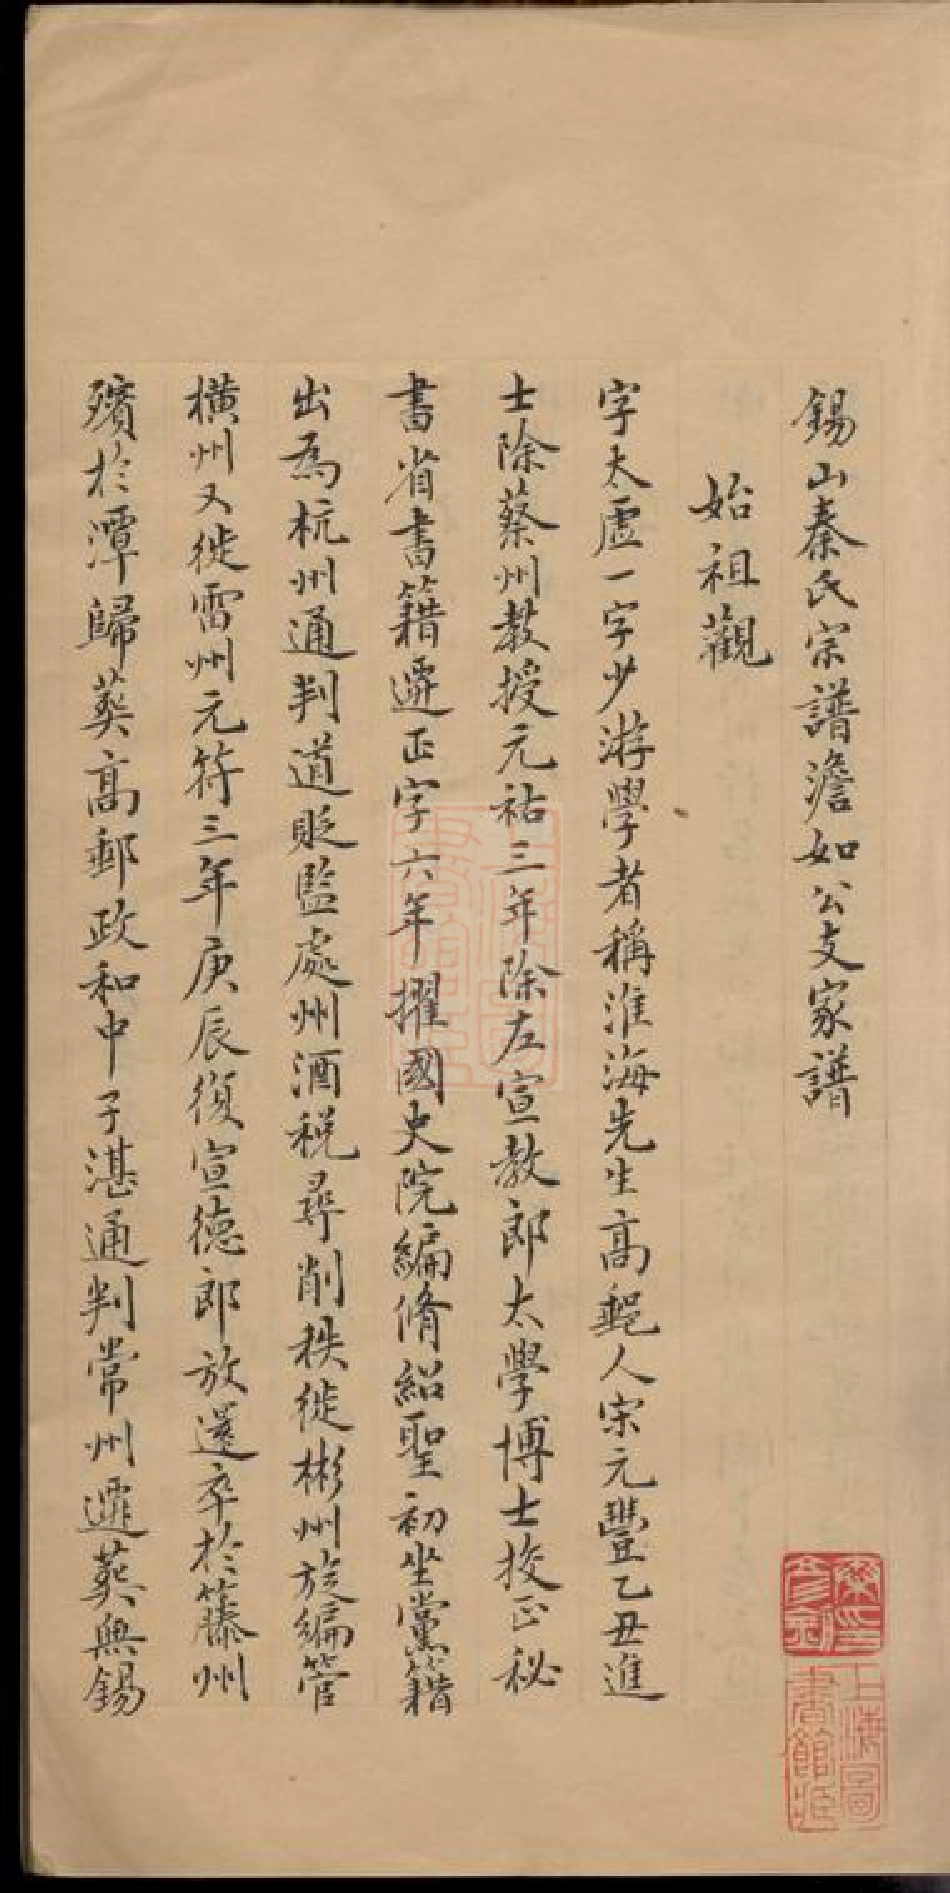 錫山秦氏宗譜澹如公支家譜
始祖觀
字太虛一字少游學者稱淮海先生高郵人宋元豐乙丑進
士除蔡州教授元祐三年除左宣教郎太學博士校正秘
書省書籍遷正字六年擢國史院編脩紹聖初坐黨籍
出為杭州通判道貶監處州酒稅尋削秩徙彬州旋編管
橫州又徙雷州元符三年庚辰復宣德郎放還卒於藤州
殯於潭歸葬高郵政和中子湛通判常州遷葬無錫
上海圖書館藏
上海圖
書館藏